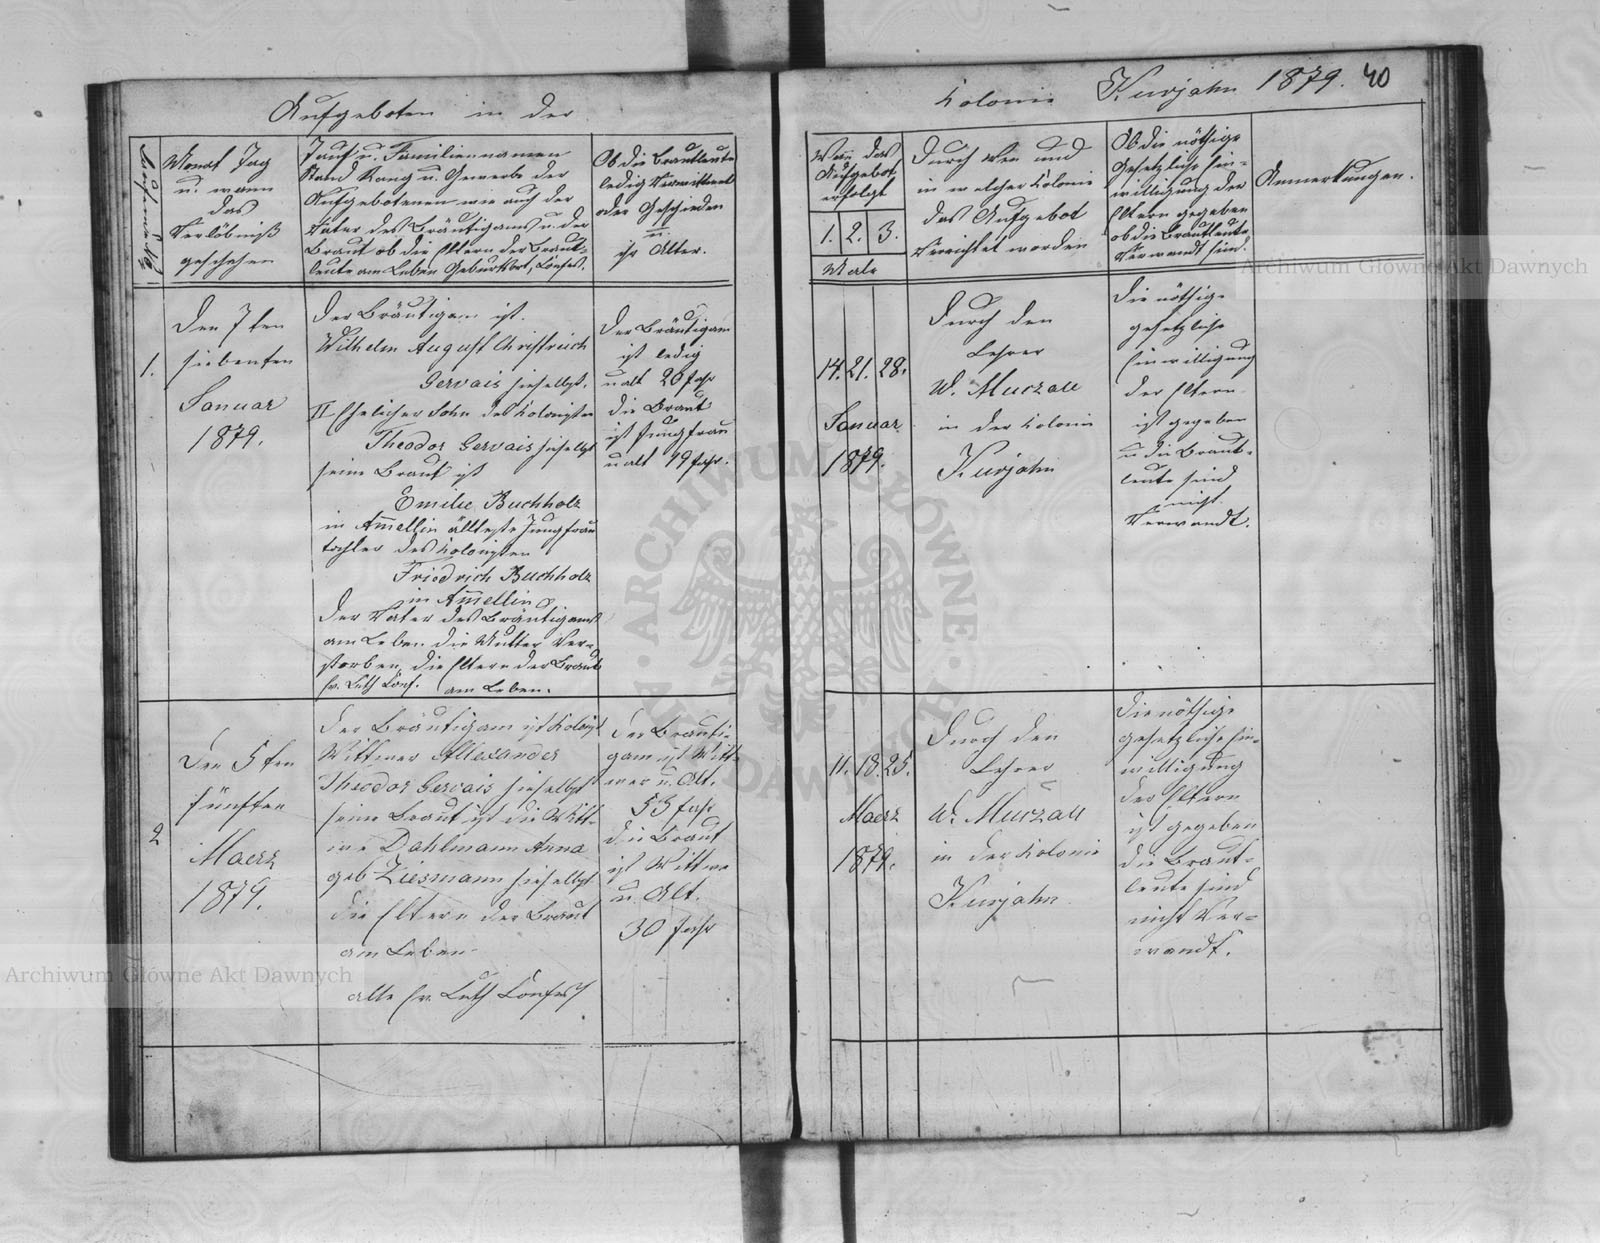 Aufgeboten in der
Kolonie Kurjahn 1879. 40
Monat Tag
u. wann
das
Verlöbniß
geschehen
Tauf u. Familiennamen
Stand Rang u. Gewerbe der
Aufgebotenen wie auch der
Väter des Bräutigams u. der
Braut ob die Eltern der Braut-
leute am Leben Geburtsort, Confes.
Ob die Brautleute
ledig Verwittwet
oder Geschieden
u.
ihr Alter.
Wann das
Aufgebot
erfolgt
1. 2. 3.
Male
Durch Wen und
in welcher Kolonie
das Aufgebot
Verrichtet worden
Ob die nöthige
Gesetzliche Ein-
willigung der
Eltern gegeben
ob die Brautleute
Verwandt sind.
Anmerkungen.
1.
Den 7ten
siebenten
Januar
1879.
Der Bräutigam ist.
Wilhelm August Christreich
Gervais hieselbst.
II Ehelicher Sohn des Kolonisten
Theodor Gervais hieselbst
seine Braut ist
Emilie Buchholz
in Amellin älteste Jungfrau
tochter des Kolonisten
Friedrich Buchholz
in Amellin
Der Vater des Bräutigams
am Leben die Mutter Ver-
storben, die Eltern der Braut
Ev. Luth Conf. am Leben.
Der Bräutigam
ist ledig
u alt 20 Jahr
die Braut
ist Jungfrau
u alt 19 Jahr.
14. 21. 28.
Januar
1879.
Durch den
Lehrer
W. Murzau
in der Kolonie
Kurjahn
Die nöthige
gesetzliche
Einwilligung
der Eltern
ist gegeben
u die Braut-
leute sind
nicht
Verwandt.
2
Den 5ten
fünften
Maerz
1879.
Der Bräutigam ist Kolonist
Wittwer Allexander
Theodor Gervais hieselbst
seine Braut ist die Witt-
we Dahlmann Anna
geb Ziesmann hieselbst
die Eltern der Braut
am Leben
alle Ev. Luth Confess
Der Bräuti-
gam ist Witt-
wer u. Alt.
53 Jahr
die Braut
ist Wittwe
u. Alt.
30 Jahr
11. 18. 25.
Maerz
1879.
Durch den
Lehrer
W. Murzau
in der Kolonie
Kurjahn
Die nöthige
gesetzliche Ein-
willigung
der Eltern
ist gegeben
die Braut-
leute sind
nicht Ver-
wandt.
ARCHIWUM GŁÓWNE AKT DAWNYCH
Archiwum Główne Akt Dawnych
Archiwum Główne Akt Dawnych